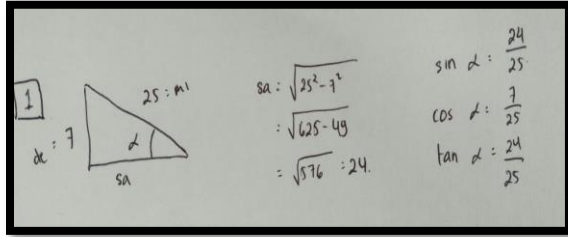 1
25 : mi
de : 7
α
sa
sa : √25² - 7²
: √625 - 49
= √576 : 24.
sin α : 24/25.
cos α : 7/25
tan α = 24/25